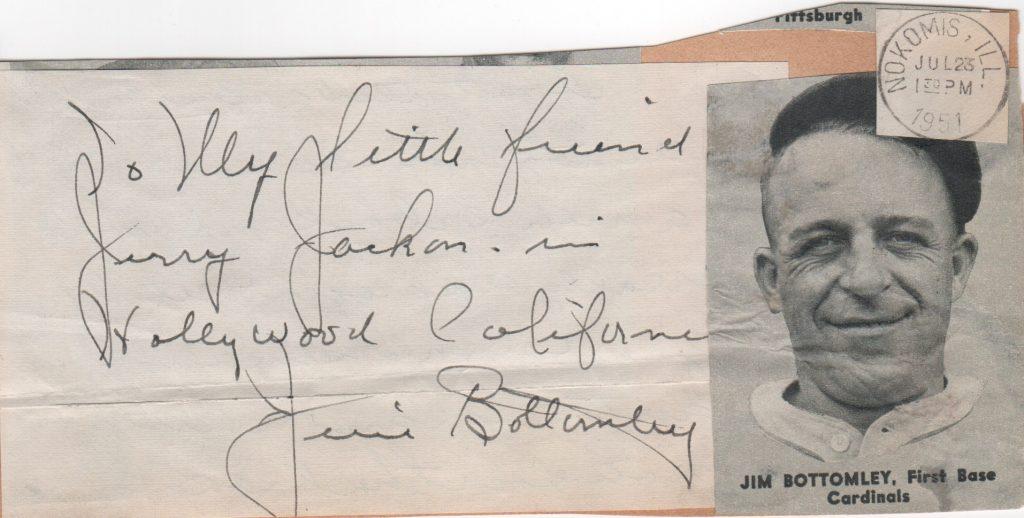 Pittsburgh
NOKOMIS, ILL.
JUL 23
1 30 PM
1951
To My Little friend
Jerry Jackson. in
Hollywood California
Jim Bottomley
JIM BOTTOMLEY, First Base
Cardinals